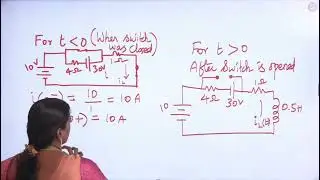 For t<0 (When switch
was closed)
1Ω
4Ω 30V
10
i
= 10/1 = 10A
+) = 10A
For t>0
After switch is opened
4Ω 30V
1Ω
10
0.5H
i_L(t)